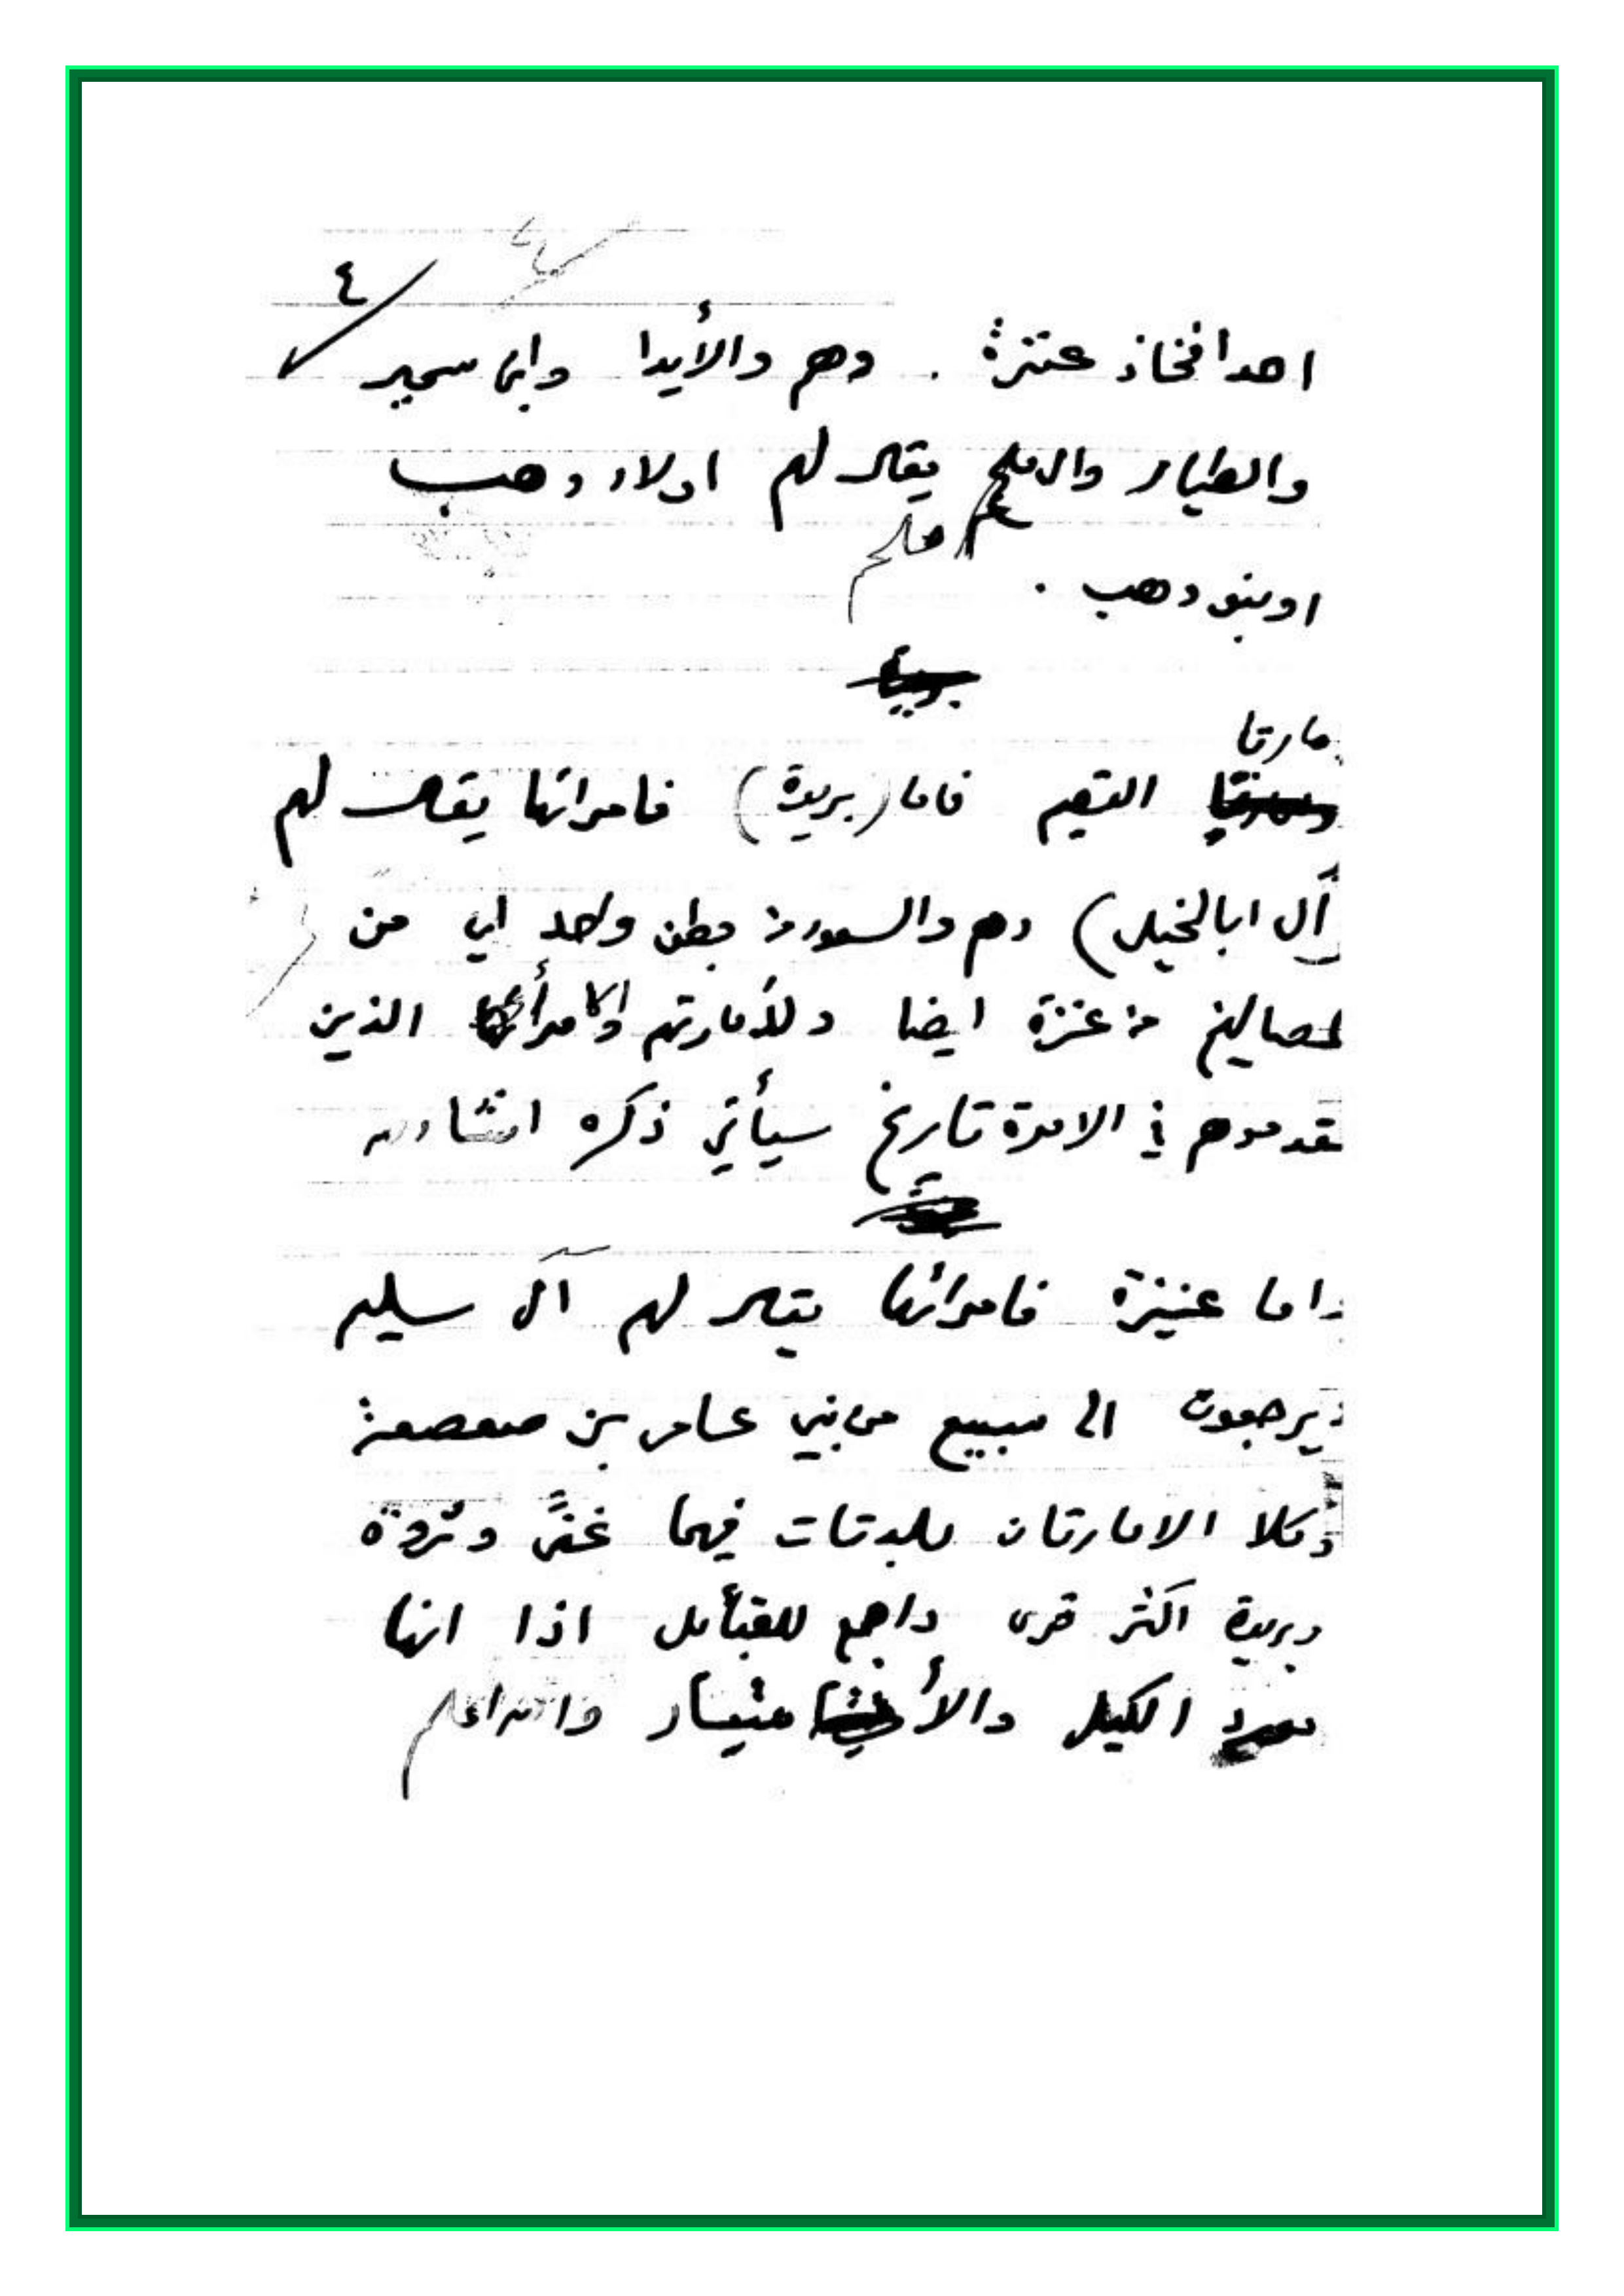 ٤
احد افخاذ عنزة . وهم والأيدا وابن سمير
والطيار والملحم يقال لهم اولاد وهب
ملحم
او بنو وهب .
مارتا
القصيم فاما (بريدة) فامرائها يقال لهم
آل ابالخيل) وهم والسعود من بطن واحد اي من
لمصاليخ من عنزة ايضا ولأمارتهم الذين
تقدموهم في الامرة تاريخ سيأتي ذكره انشاء الله
واما عنيزة فامرائها يقال لهم آل سليم
ويرجعون الى سبيع من بني عامر بن صعصعة
وكلا الامارتان فيهما غنىً وثروة
وبريدة اكثر قرى واجمع للقبأيل اذا انها
الكيل والأ متيار والله اعلم